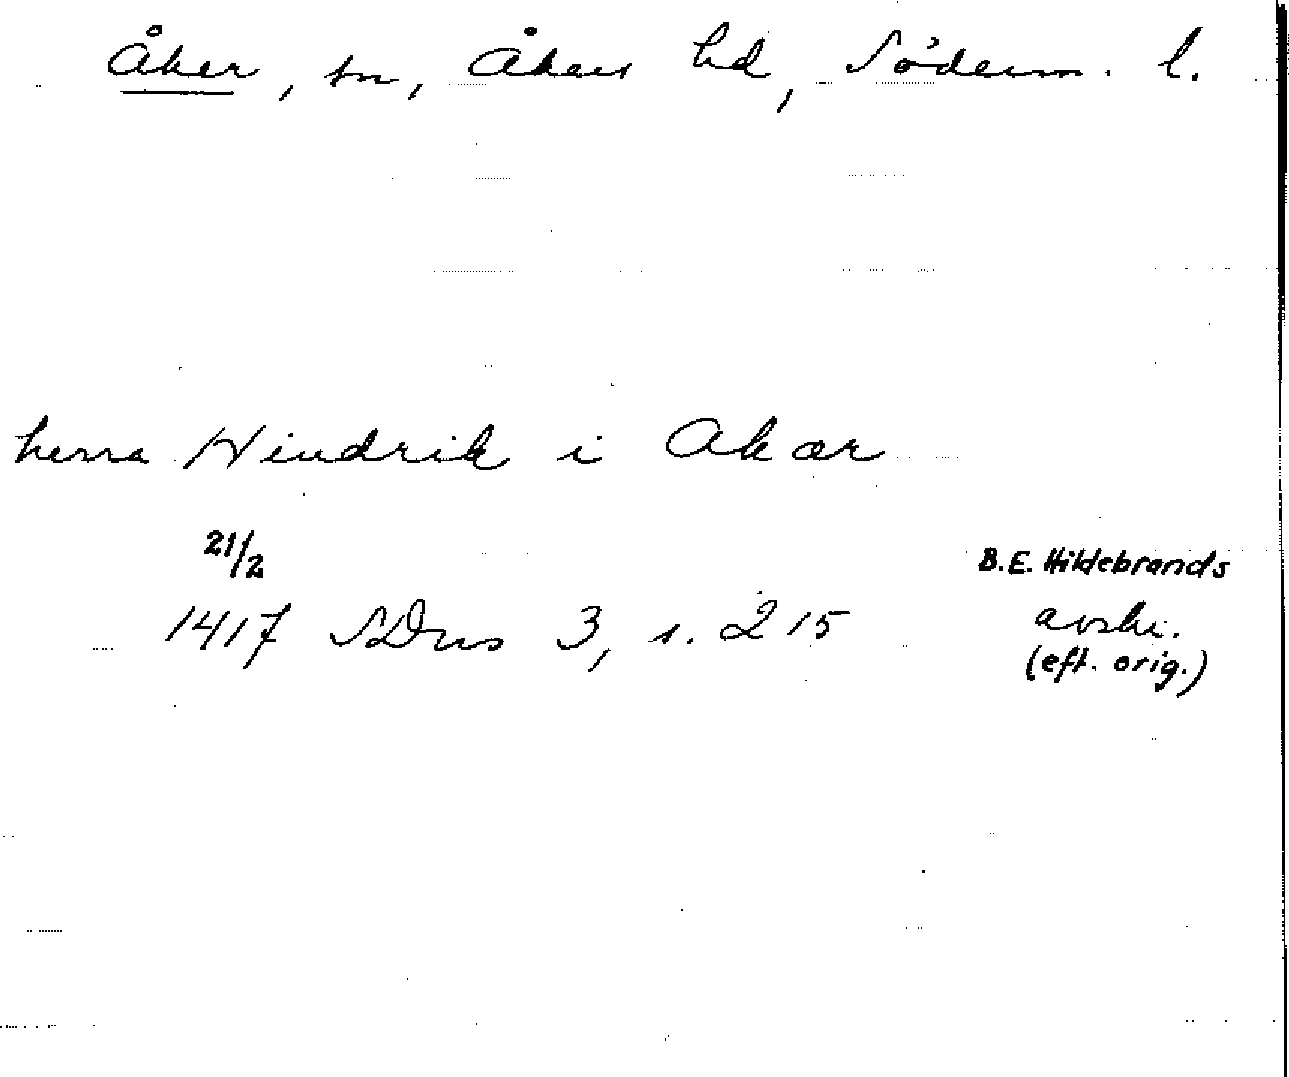 Åker, sn, Åkers hd, Söderm. l.
herra Hindrik i Akær
21/2
1417 SDns 3, s. 215
B.E. Hildebrands
avskr.
(eft. orig.)